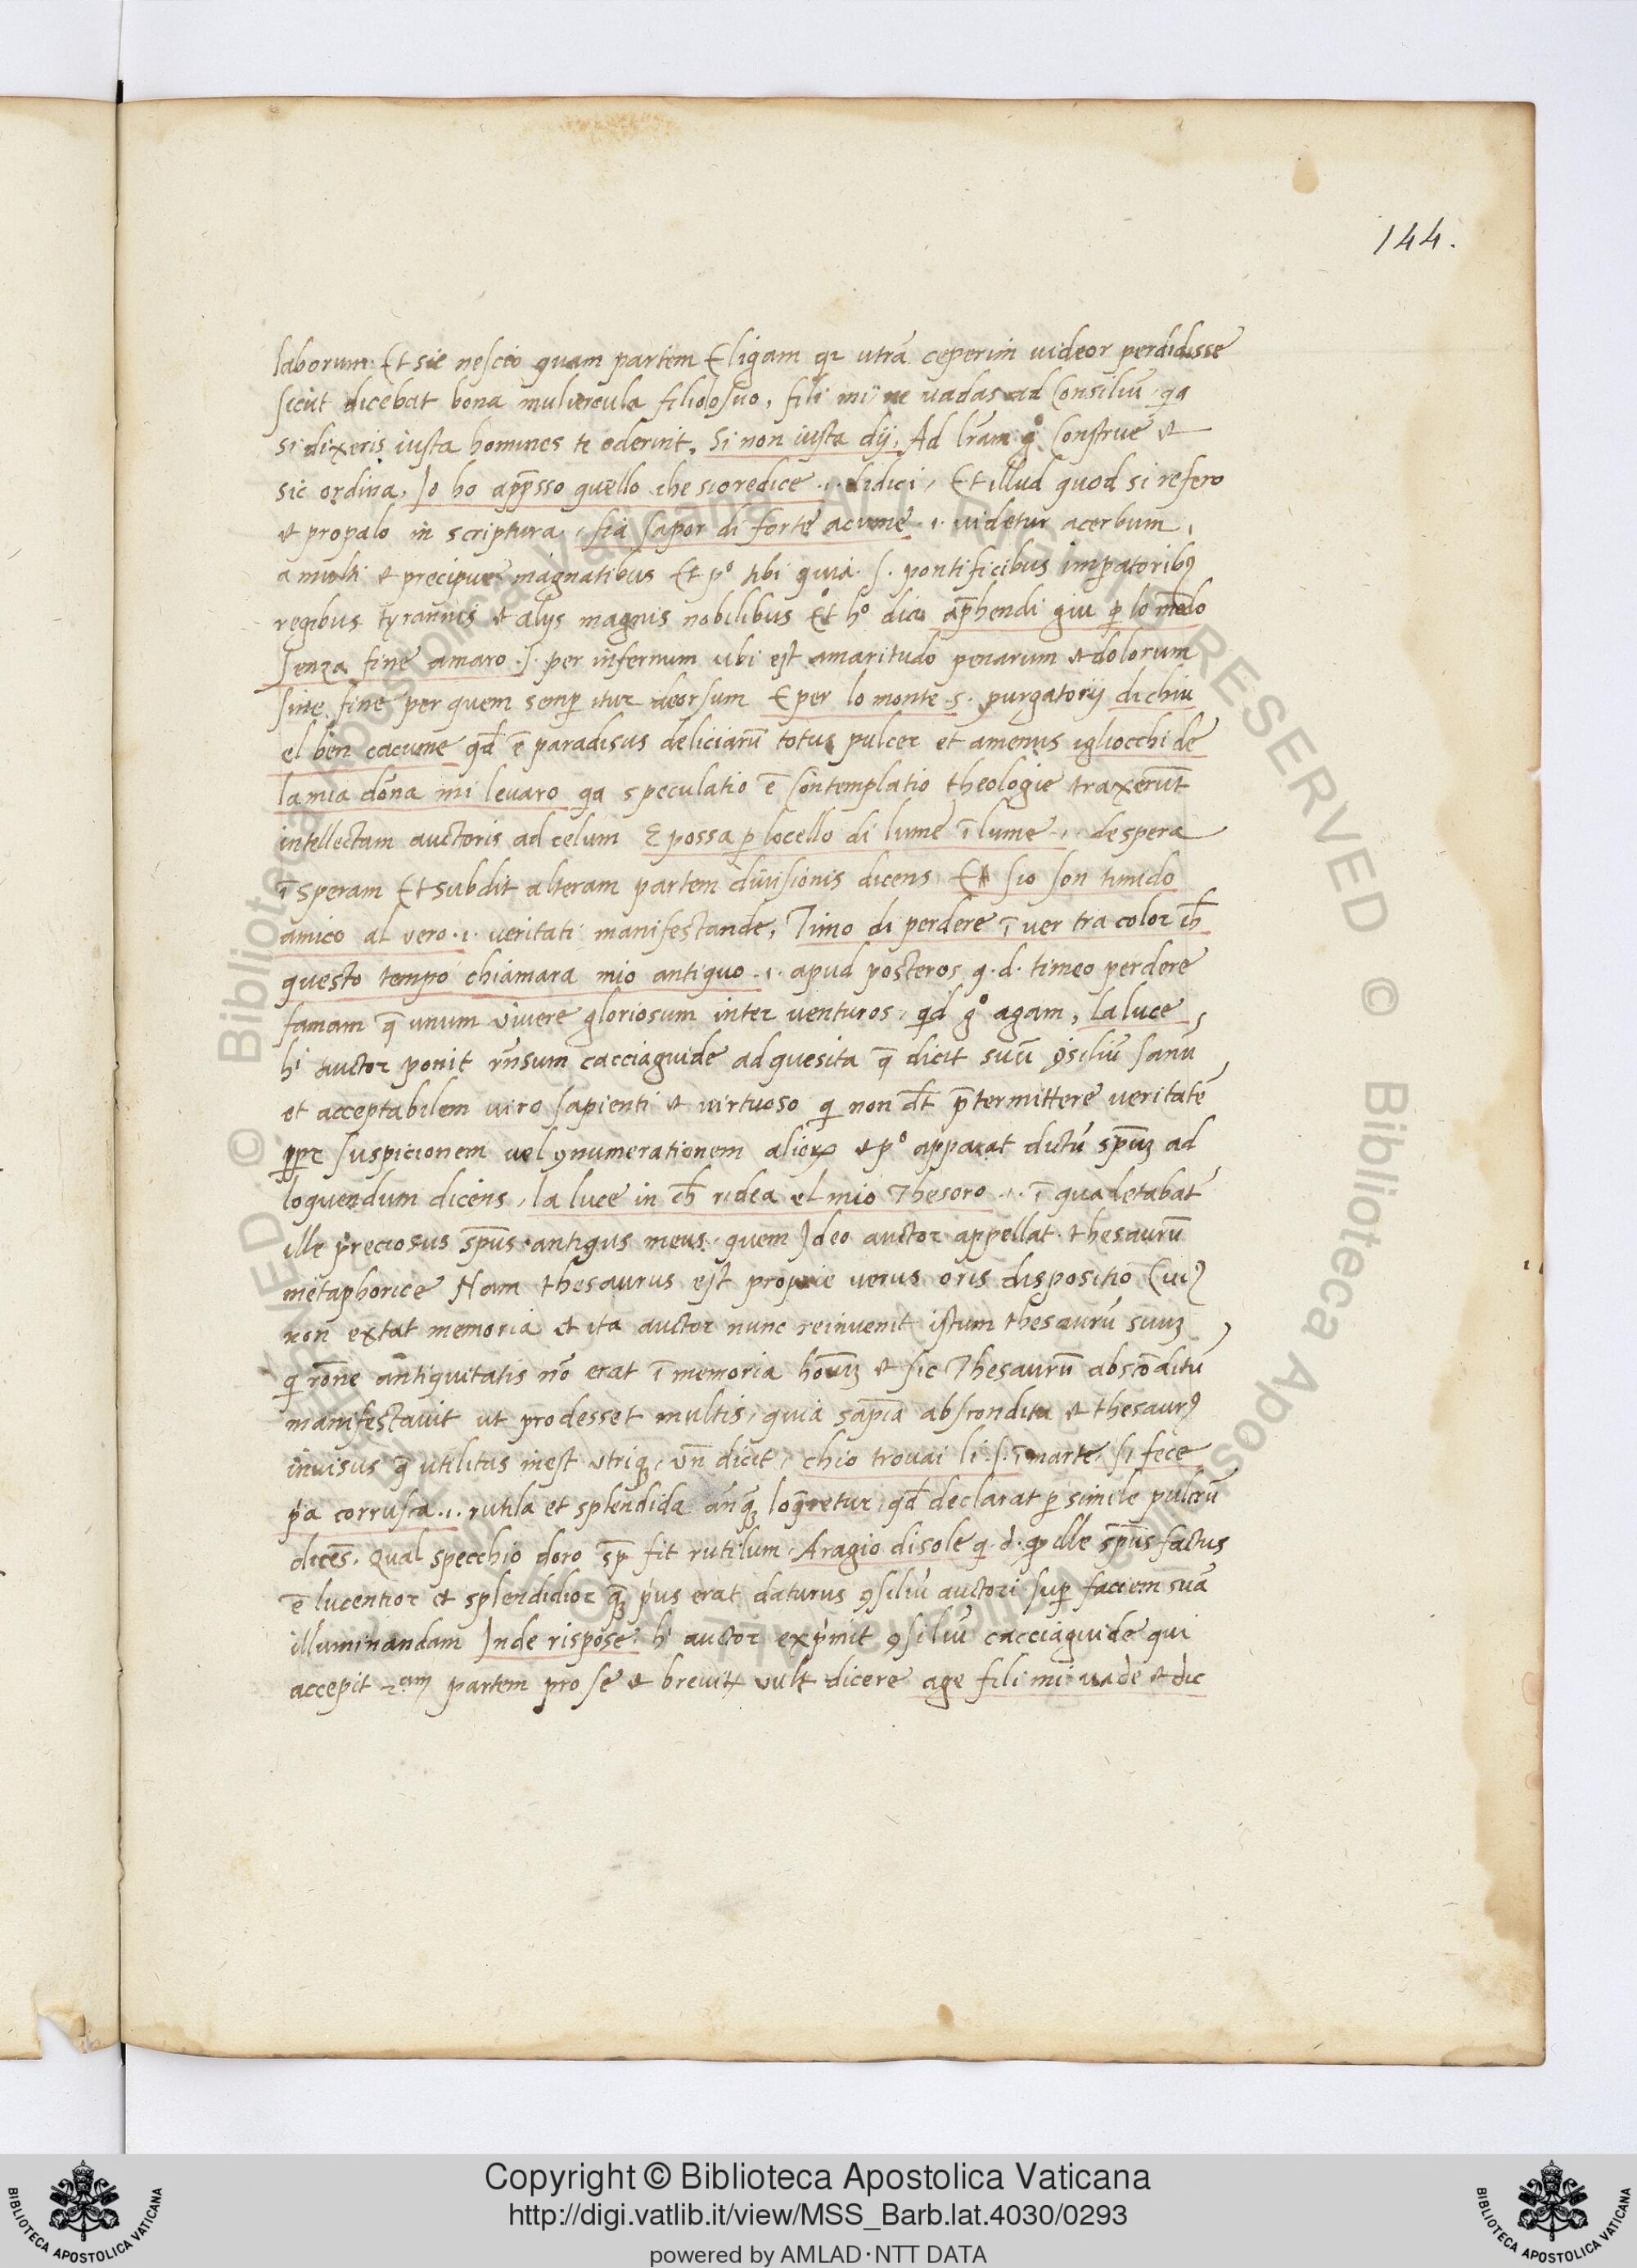 144.
laborum. Et sic nescio quam partem Eligam qr utrã ceperim uideor perdidisse
sicut dicebat bona muliercula filiolo suo, fili mi ne uadas ad Consiliũ qa
si dixeris iusta homines te oderint, Si non iusta dij, Ad lr̃am g° Construe et
sic ordina, Jo ho app̃sso quello che sioredice .i. didici, Et illud quod si refero
et propalo in scriptura, fia sapor di forte acume .i. uidetur acerbum,
a multi et precipue magnatibus Et p° tibi quia .s. pontificibus imp̲atoribꝯ
regibus tyrannis et alijs magnis nobilibus Et h° dico ap̃hendi giu p̲ lo mõdo
senza fine amaro .s. per infernum ubi est amaritudo penarum et dolorum
sine fine per quem semp̲ itur deorsum E per lo monte .s. purgatorij di chiu
el ben cacume qd̃ ẽ paradisus deliciarũ totus pulcer et amenus igliocchi de
la mia dõna mi leuaro qa speculatio ẽ Contemplatio theologie traxerũt
intellectam auctoris ad celum E possa p̲ locello di lume ĩ lume .i. de spera
ĩ speram Et subdit alteram partem diuisionis dicens Et sio son timido
amico al vero .i. veritati manifestande, Timo di perdere ĩ uer tra color ch̃
questo tempo chiamara mio antiquo .i. apud posteros q.d. timeo perdere
famam q̃ unum viuere gloriosum inter uenturos, qd g° agam, la luce,
hi auctor ponit rñsum cacciaguide ad quesita q̃ dicit suũ ꝯsiliũ sanũ
et acceptabilem uiro sapienti et uirtuoso qi non dt̃ p̃termittere ueritatẽ
pp̲r suspicionem uel ꝯnumerationem alioꝝ et p° apparat dictũ sp̃uꝫ ad
loquendum dicens, la luce in ch̃ ridea el mio Thesoro .i. ĩ qua letabat
ille preciosus sp̃us antiqus meus, quem Jdeo auctor appellat thesaurũ
metaphorice Nam thesaurus est proprie uerus oris dispositio Cuiꝯ
non extat memoria et ita auctor nunc reinuenit istum thesaurũ suuꝫ
qi rõne antiquitatis nõ erat ĩ memoria hõuꝫ et sic Thesaurũ abscõditũ
manifestauit ut prodesset multis, quia sap̃ia abscondita et thesaurꝯ
inuisus q̃ utilitas inest utriqꝫ, Vñ dicit, chio trouai li .s. ĩ marte, si fece
pi̇a corrusca .i. rutila et splendida añqꝫ loq̃retur, qd̃ declarat p̲ simile pulcrũ
dicẽs, Qual specchio doro sp̃ fit rutilum, Aragio di sole q.d. ꝙ ille sp̃us factus
ẽ lucentior et splendidior qꝫ pi̇us erat daturus ꝯsiliũ auctori sup̲ faciem suã
illuminandam Jnde rispose, hi auctor expi̇mit ꝯsiliũ cacciaguide qui
accepit 2am partem pro se et breuitꝶ vult dicere age fili mi uade et dic